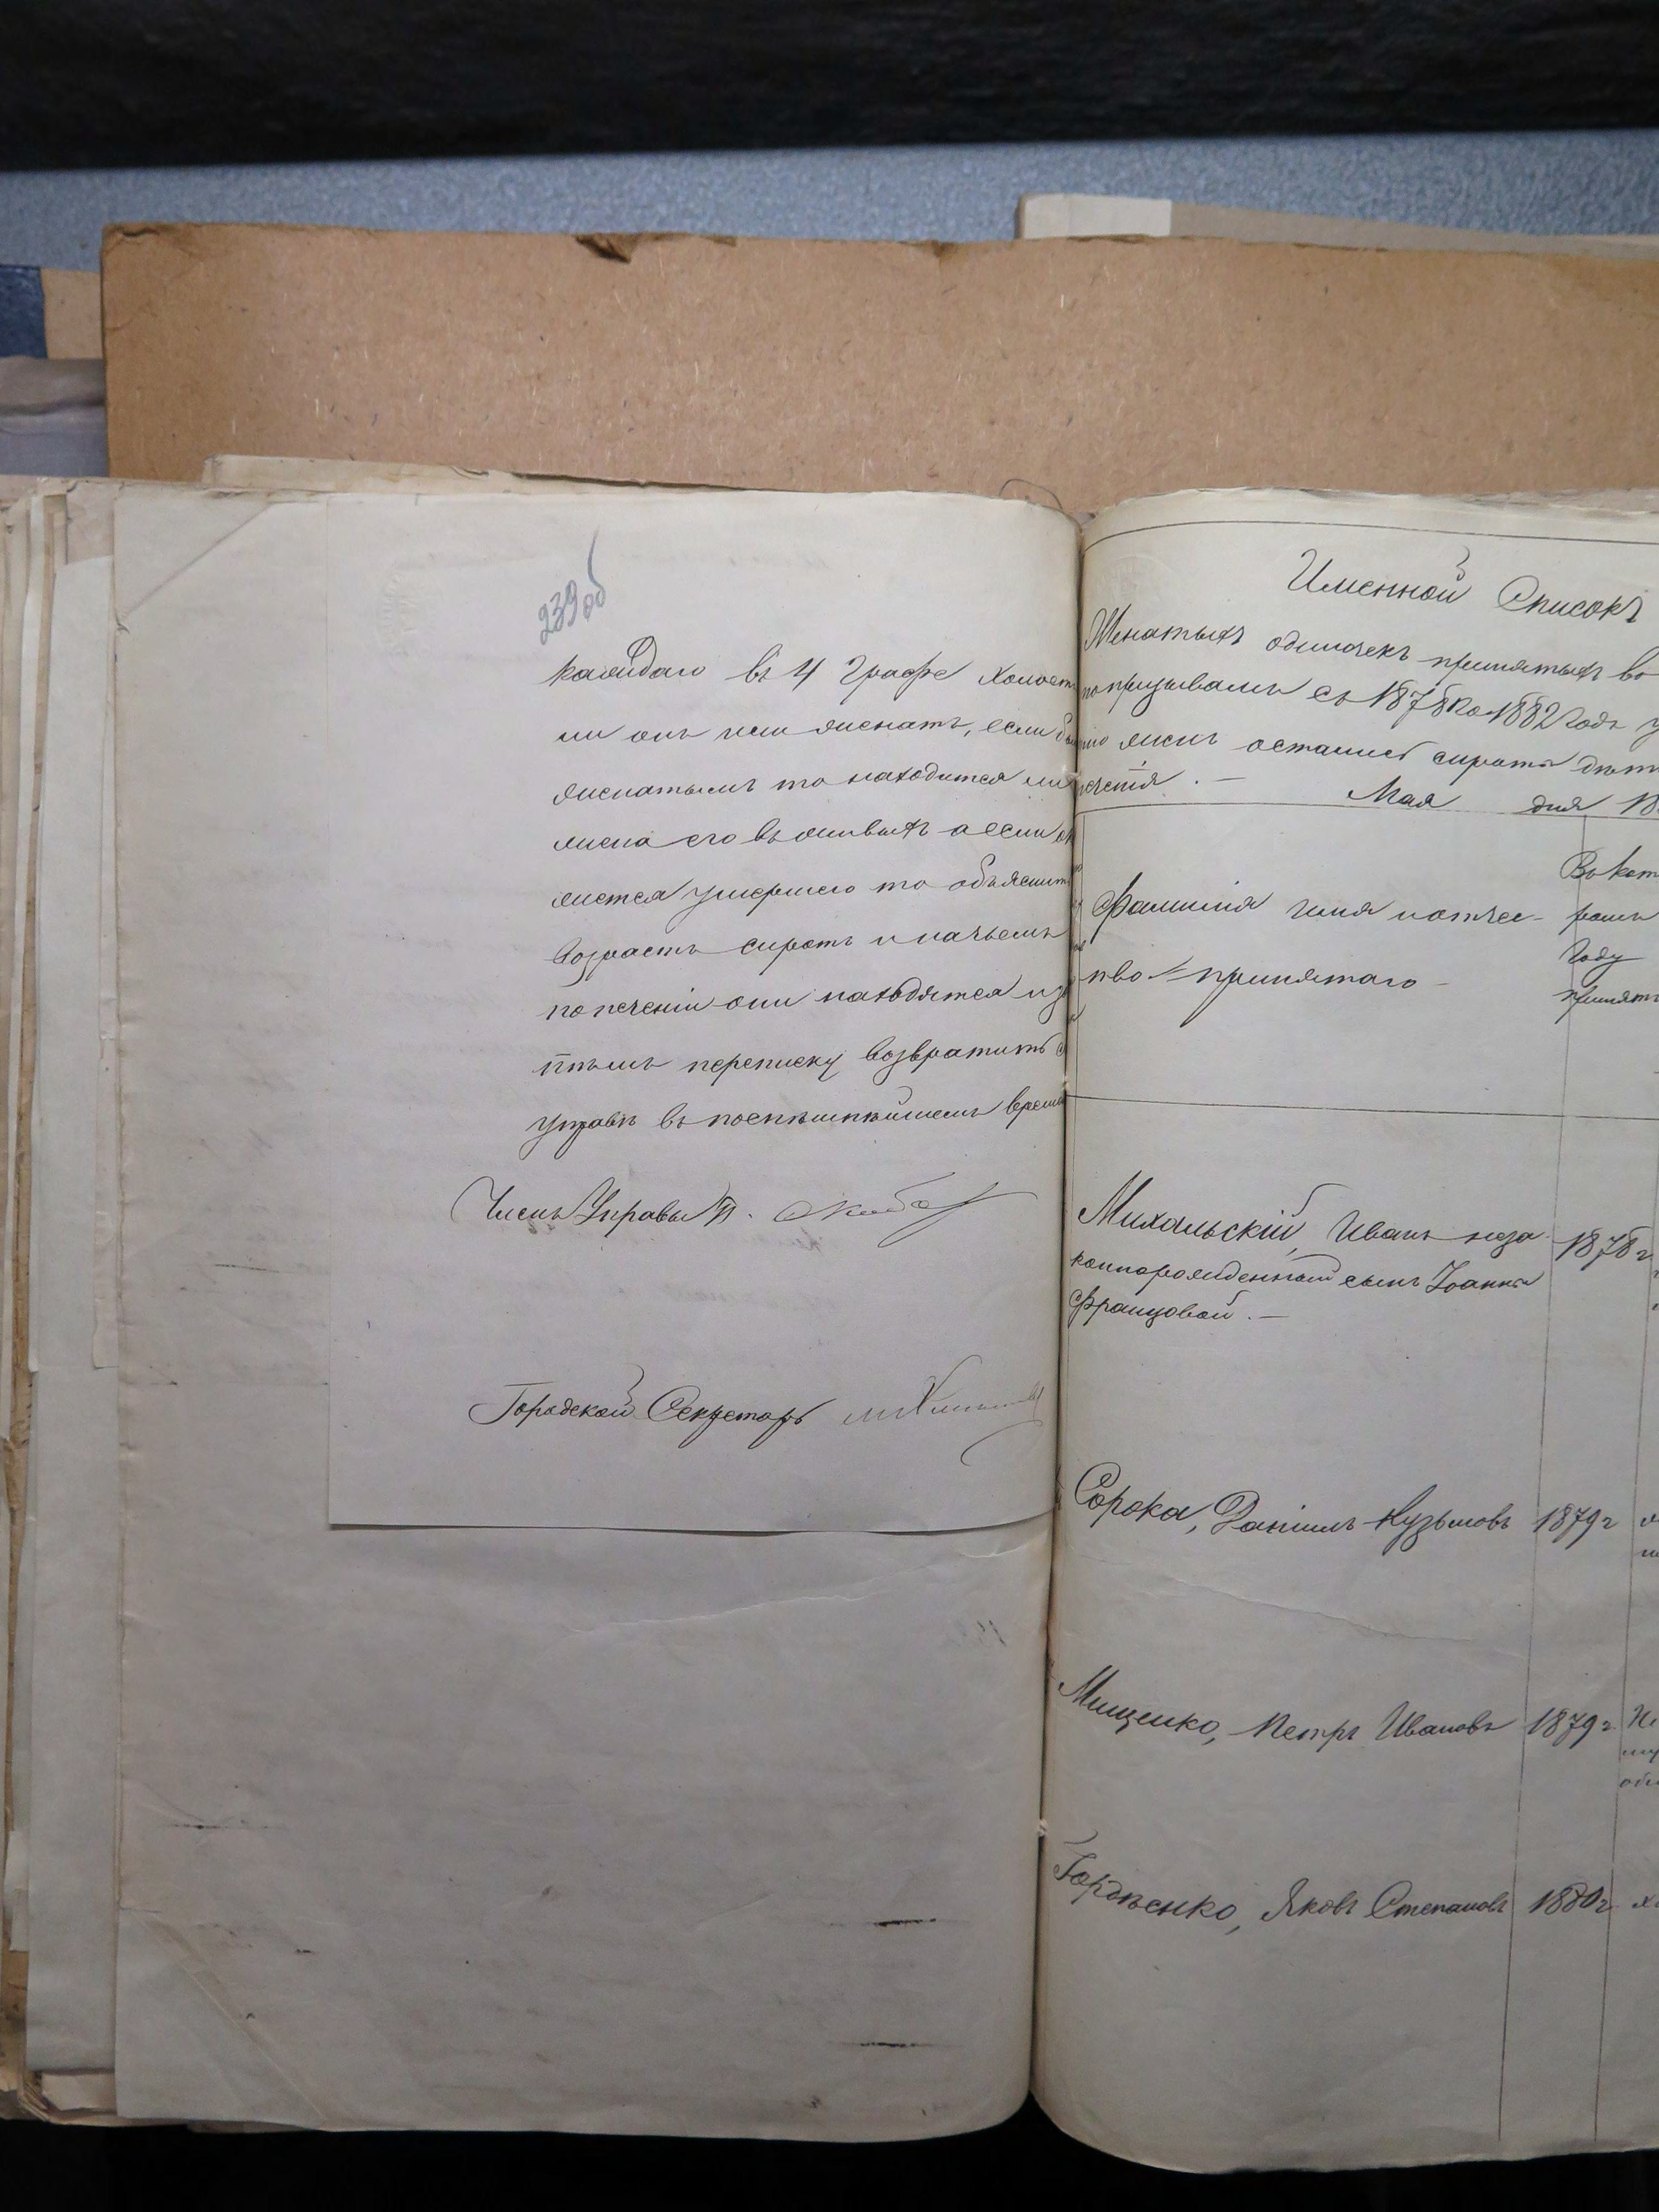 239 об
каждаго въ 4 графе холост
ли онъ или женатъ, если бы
женатымъ то находится ли
жена его въ живыхъ а если
жется умершею то объяснить
возрастъ сиротъ и на чьемъ
попеченіи они находятся и
переписку возвратить
Управѣ въ поспѣшнѣйшемъ време
Членъ Управы П.
Городской Секретарь
Именной Списокъ
Женатыхъ одиночекъ принятыхъ во
по призывамъ съ 1878 по 1882 годъ у
женъ остались сироты дѣти
Мая дня 18
Фамилія имя и отчес-
тво принятаго
Въ кото
ромъ
году
принятъ
Михальскій, Иванъ неза-
коннорожденный сынъ Іоанны
Францовой.—
1878 г
Сорока, Даніилъ Кузьмовъ 1879 г
Мищенко, Петръ Ивановъ 1879 г
Гордѣенко, Яковъ Степановъ 1880 г